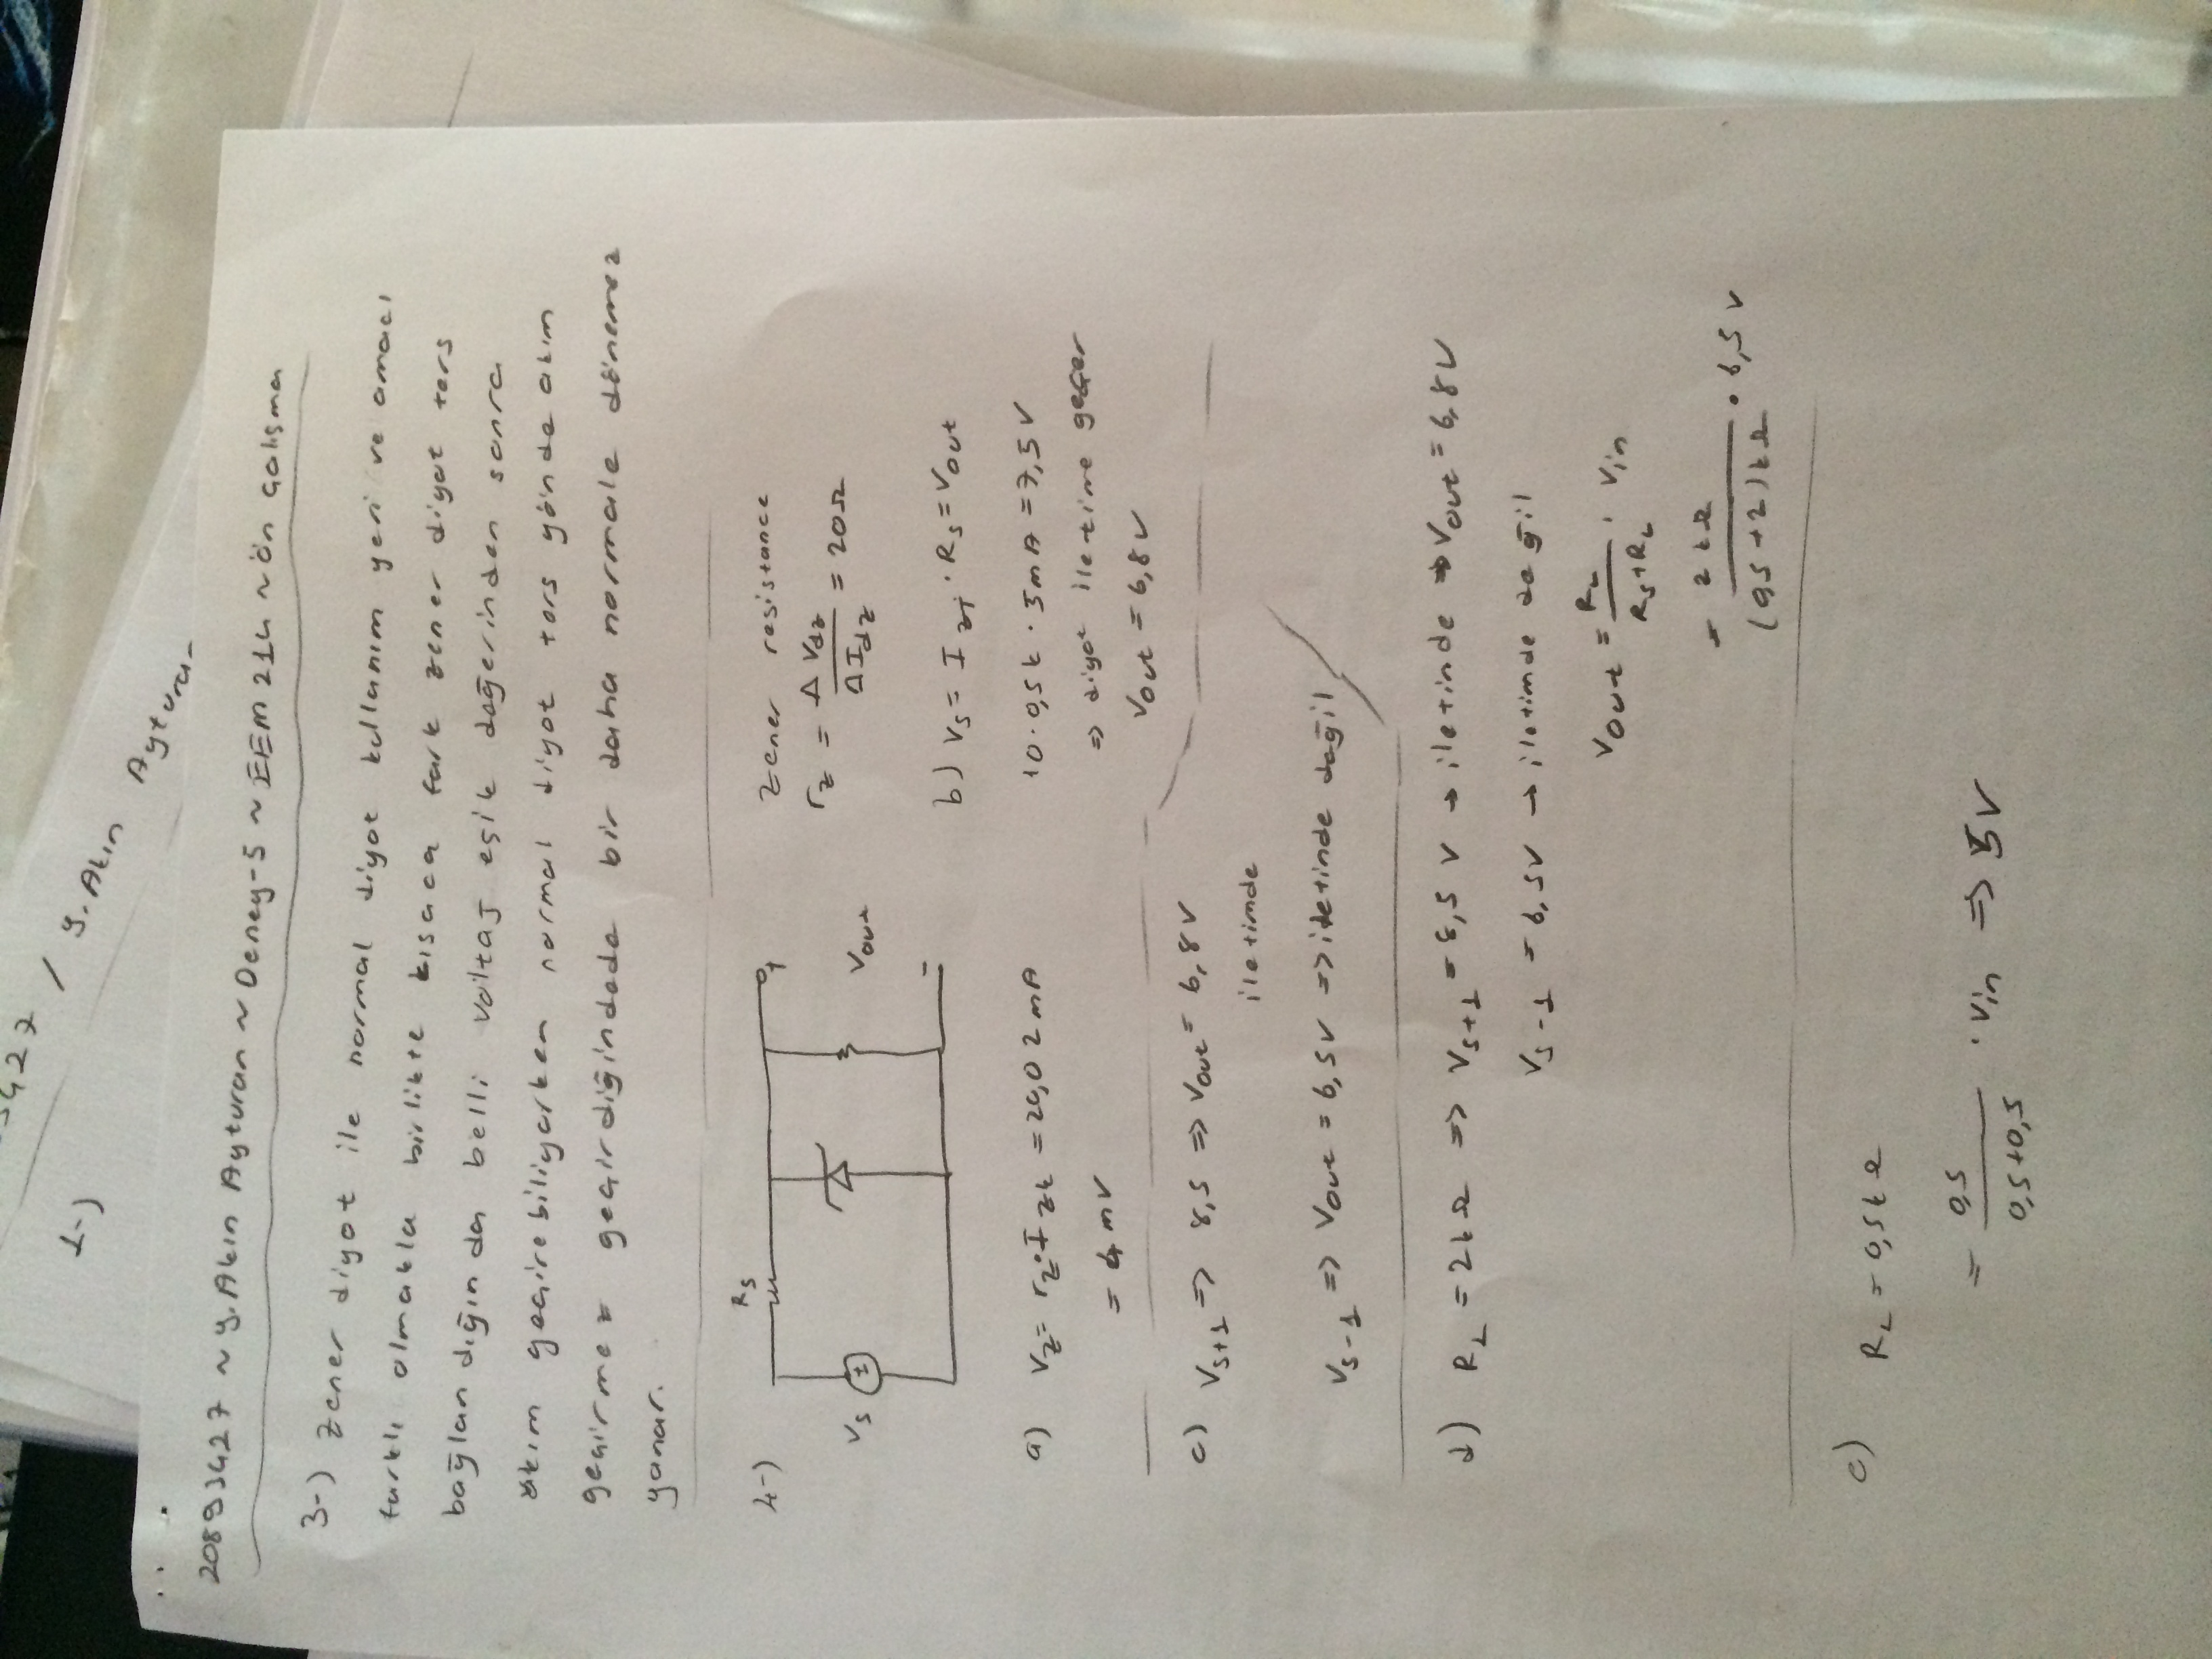 3427 / Y. Akın Ayturan
1-)
20893427 ~ Y. Akın Ayturan ~ Deney-5 ~ EEM 214 ~ Ön Çalışma
3-) Zener diyot ile normal diyot kullanım yeri ve amacı
farklı olmakla birlikte kısaca fark zener diyot ters
bağlandığında belli voltaj eşik değerinden sonra
akım geçirebiliyorken normal diyot ters yönde akım
geçirmez geçirdiğindede bir daha normale dönemez
yanar.
4-)
Rs
Vs
+
Vout
-
Zener resistance
rz = ΔVdz / ΔIdz = 20Ω
a) Vz = rz·Izk = 20,02mA
= 4mV
b) Vs = Izt · Rs = Vout
10·0,5k · 5mA = 7,5V
=> diyot iletime geçer
Vout = 6,8V
c) Vs+1 => 8,5 => Vout = 6,8V
iletimde
Vs-1 => Vout = 6,5V => iletimde değil
d) RL = 2kΩ => Vs+1 = 8,5 V → iletimde => Vout = 6,8V
Vs-1 = 6,5V → iletimde değil
Vout = RL / (Rs+RL) · Vin
= 2kΩ / (0,5+2)kΩ · 6,5 V
e) RL = 0,5kΩ
= 0,5 / 0,5+0,5 · Vin => 5V